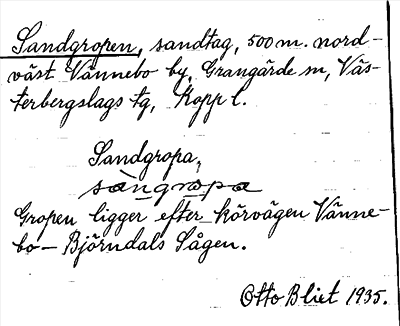 Sandgropen, sandtag, 500 m. nord-
väst Vännebo by, Grangärde sn, Väs-
terbergslags tg, Kopp l.
Sandgropa,
sàngropa
Gropen ligger efter körvägen Vänne-
bo - Björndals Sågen.
Otto Blixt 1935.